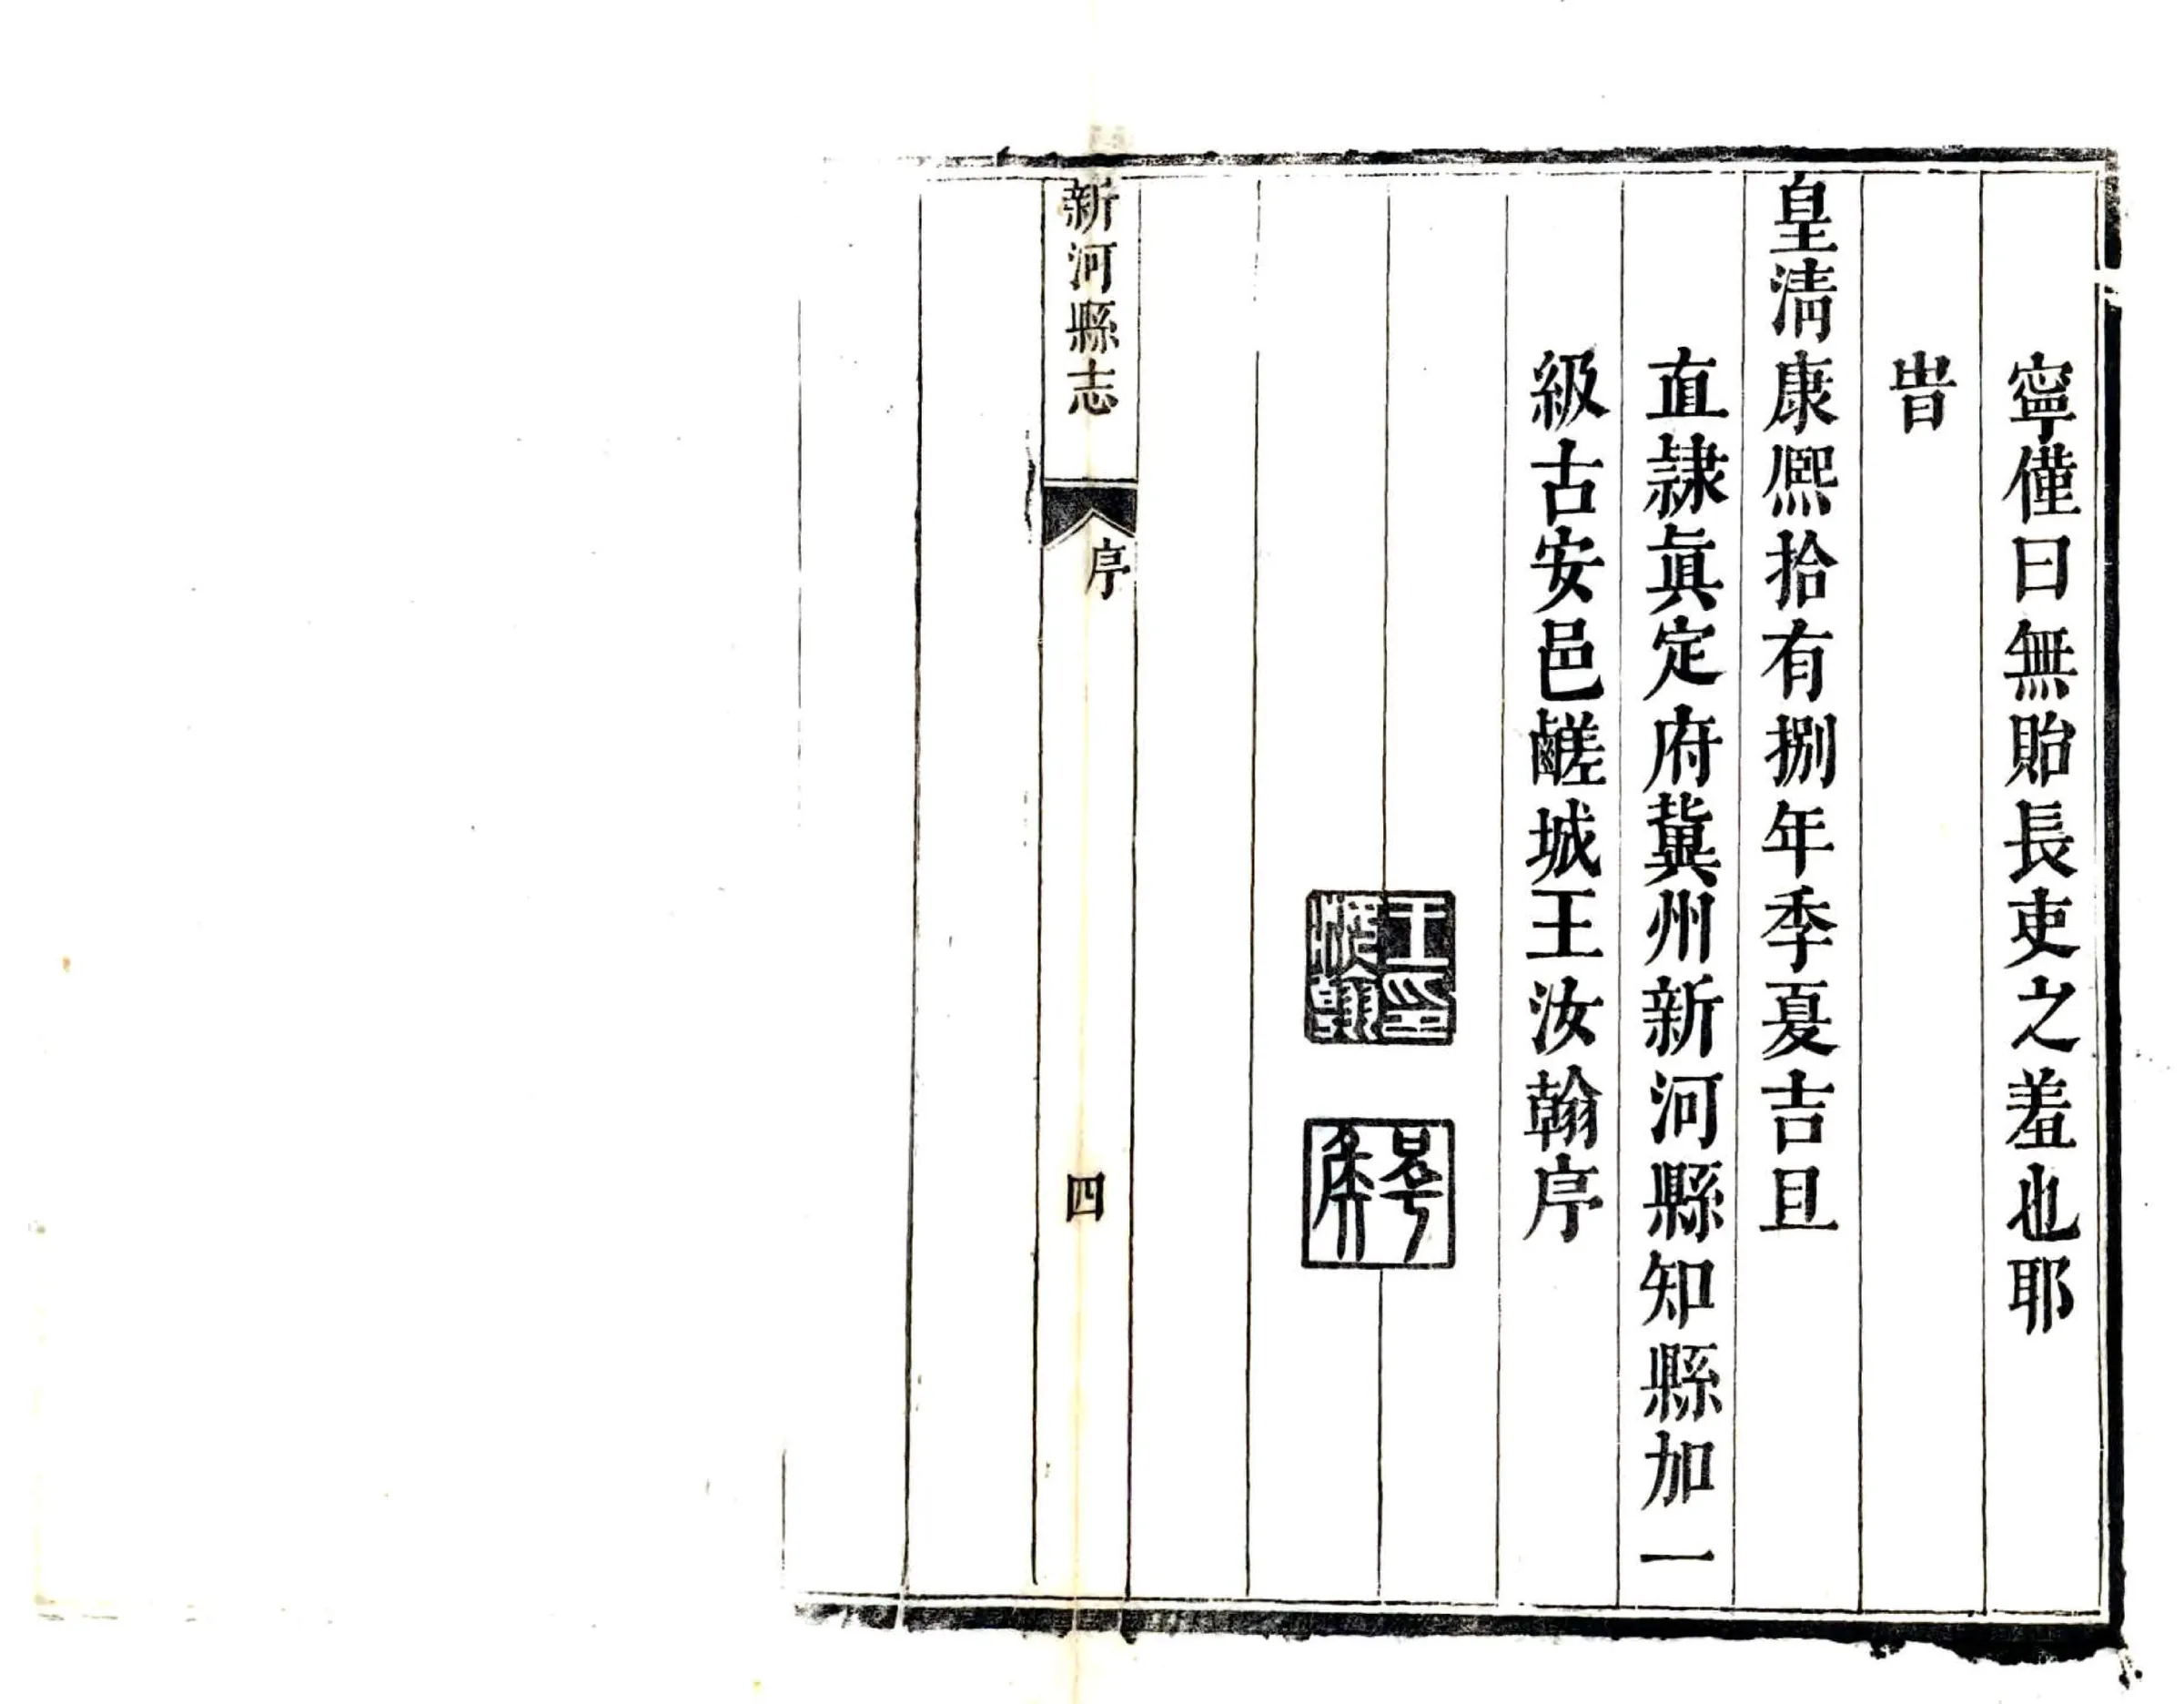 寧僅曰無貽長吏之羞也耶
旹
皇淸康熙拾有捌年季夏吉旦
直隷眞定府冀州新河縣知縣加一
級古安邑鹺城王汝翰序
王印
汝翰
新河縣志
序
四